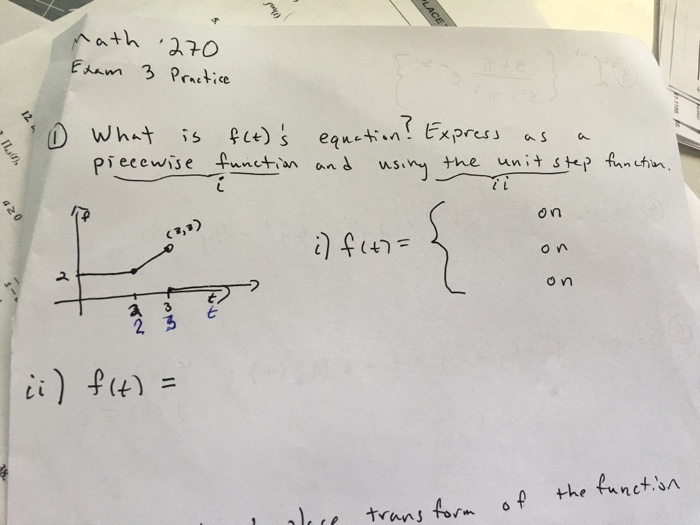 Math 270
Exam 3 Practice
① What is f(t)'s equation? Express as a
piecewise function and using the unit step function.
i ii
f
(3,3)
2
2 3 t
2 3 t
i) f(t) = {
on
on
on
ii) f(t) =
transform of the function